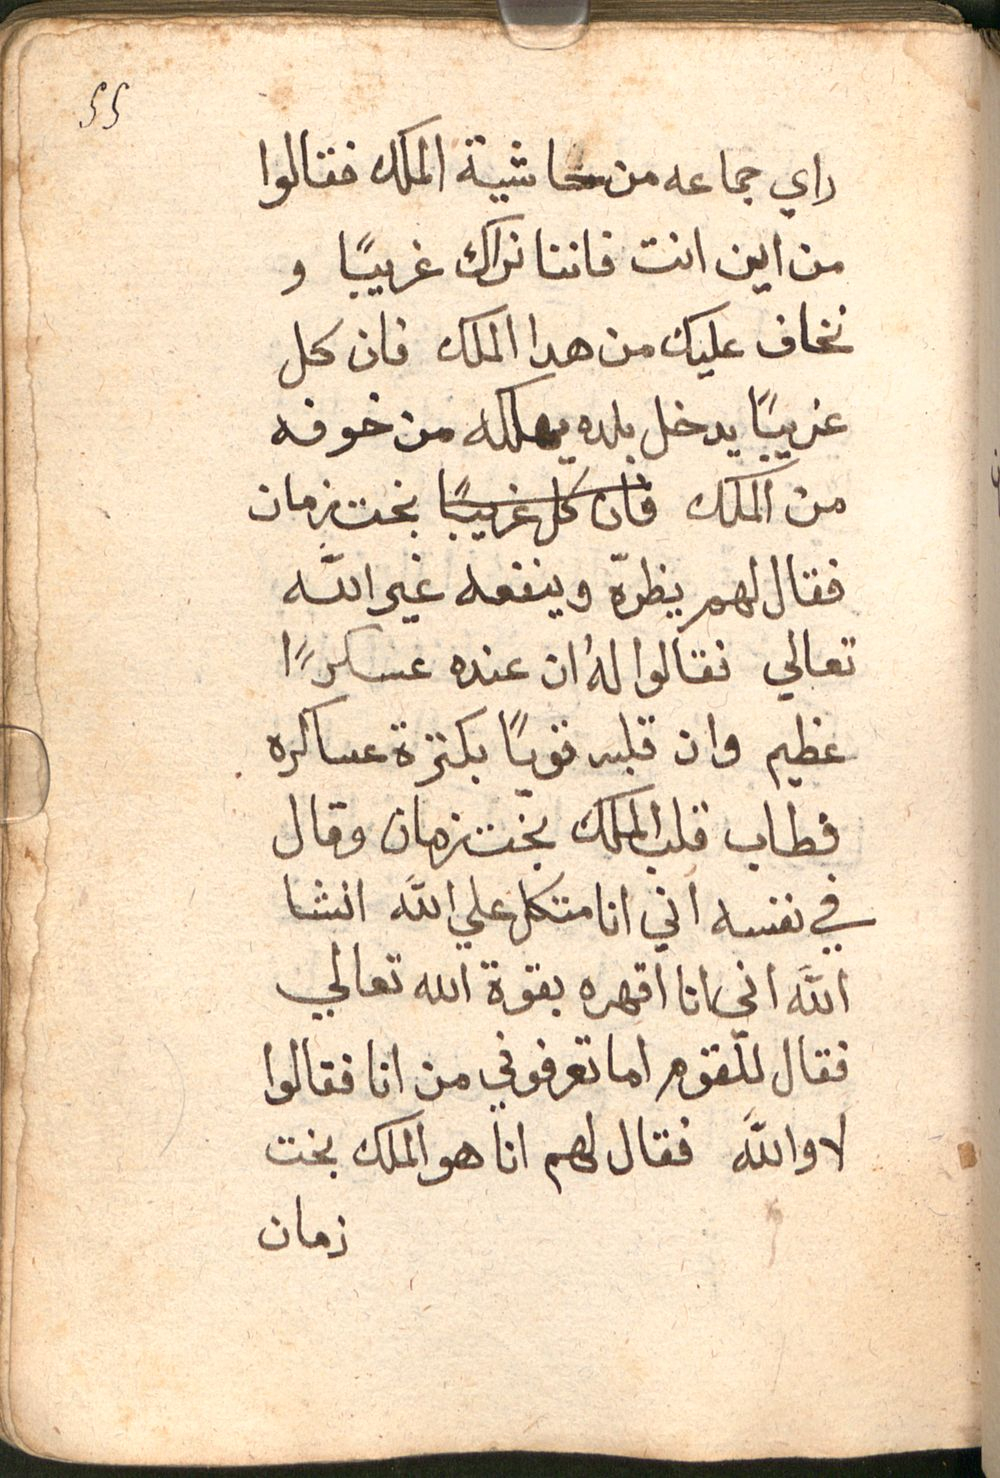 55
راي جماعه من حاشية الملك فقالوا
من اين انت فاننا نراك غريبًا و
نخاف عليك من هدا الملك فان كل
غريبًا يدخل بلده يهلكه من خوفه
من الملك فان كل غريبًا بخت زمان
فقال لهم يظرّه وينفعه غير اللّه
تعالي فقالوا لهُ ان عنده عسكرًا
عظيم وان قلبه قويًا بكترة عساكره
فطاب قلب الملك بخت زمان وقال
في نفسه اني انا متكل علي اللّه انشا
اللّه اني انا اقهره بقوة الله تعالي
فقال للقوم اما تعرفوني من انا فقالوا
لا واللّه فقال لهم انا هو الملك بخت
زمان